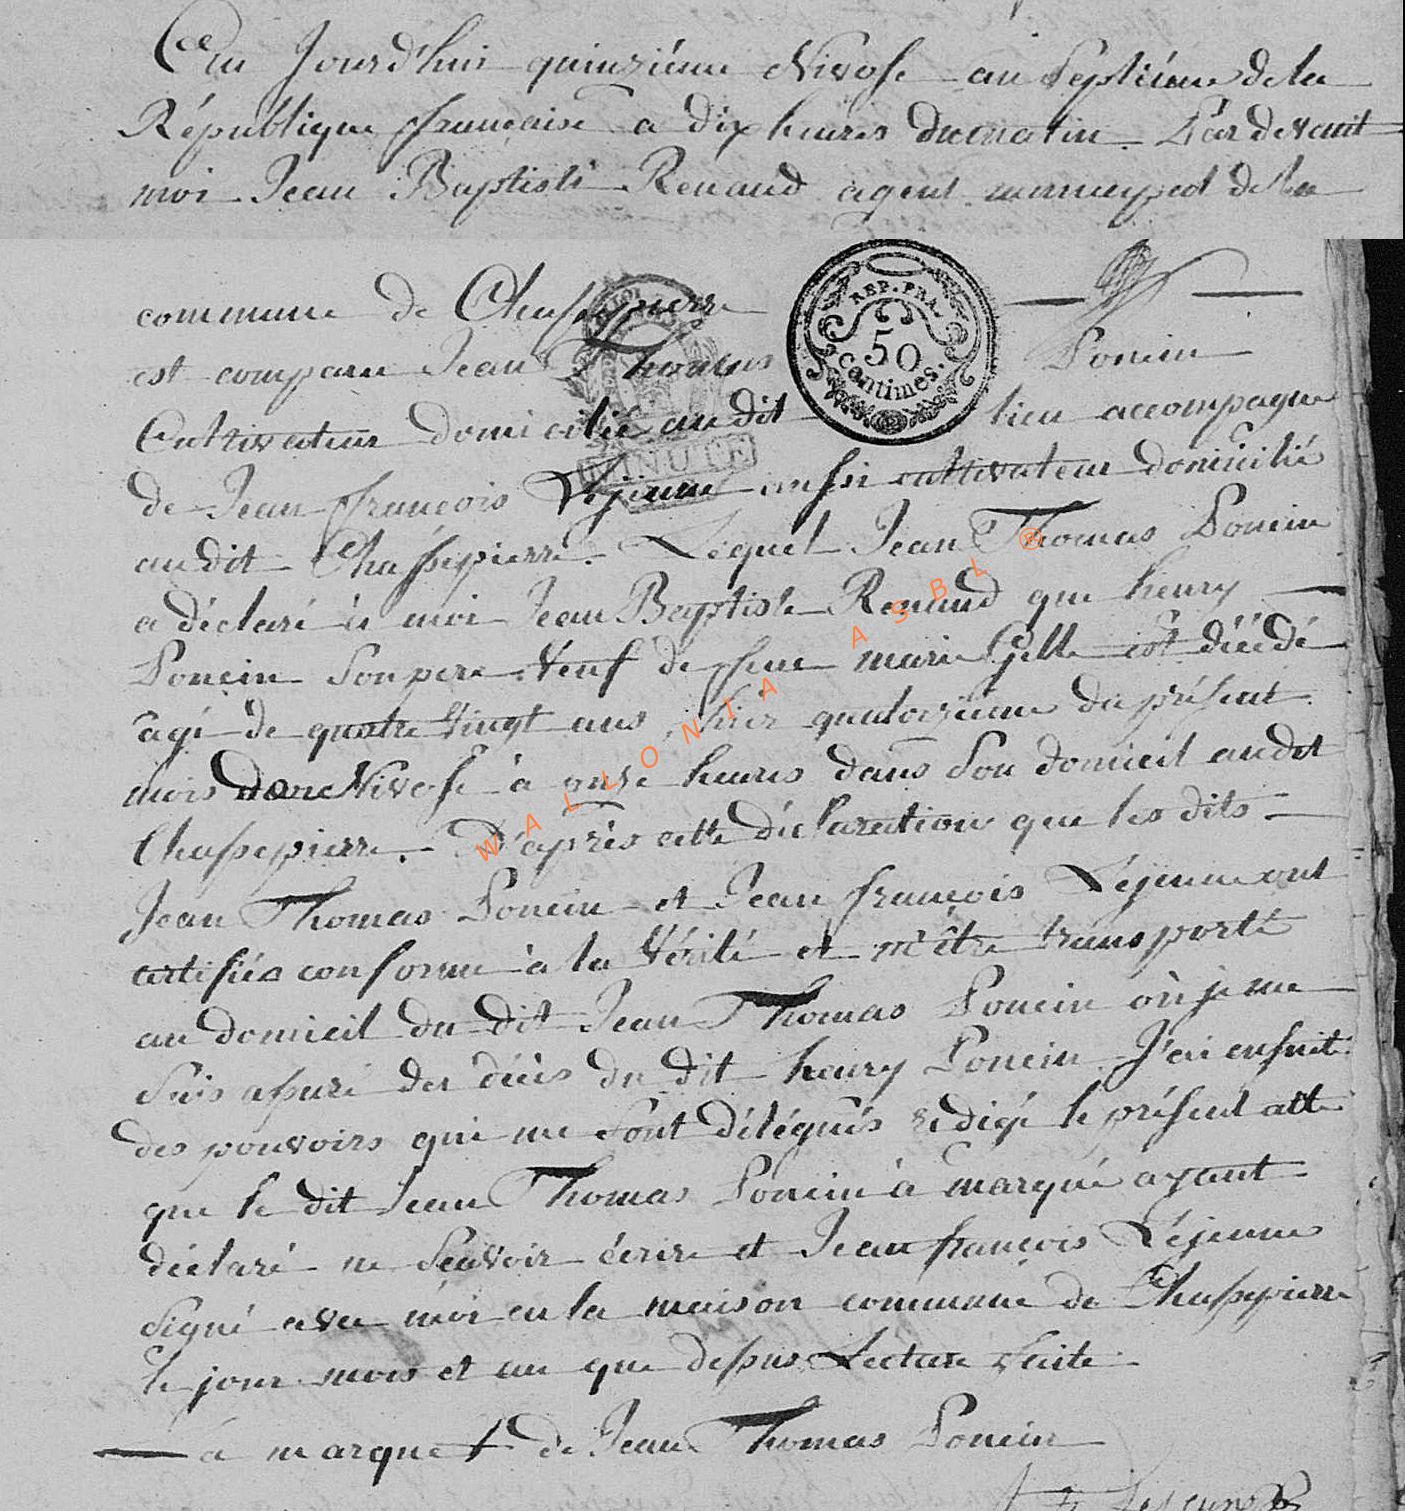 Ce au Jourd'hui quinziéme Nivose an Septiéme de la
République française a dix heures du matin. Par devant
moi Jean Baptiste Renaud agent municipal de la
commune de Chassepierre
REP. FRA.
50
centimes.
est comparu Jean Thomas Poncin
Cultivateur domicilié audit lieu accompagné
MINUTE
de Jean françois Léjeune aussi cultivateur domicilié
audit Chassepierre. Lequel Jean Thomas Poncin
a déclaré à moi Jean Baptiste Renaud que henry
Poncin Son pere Veuf de feue marie Gille est décédé
âgé de quatre Vingt ans, hier quatorziéme du présent
mois de Nivose à onze heures dans Son domicil audit
Chassepierre. D'après cette déclaration que les dits
Jean Thomas Poncin et Jean françois Léjeune ont
certifiés conforme à la Vérité et m'être transporté
au domicil du dit Jean Thomas Poncin où je me
Suis assuré des décès du dit henry Poncin J'ai ensuite
des pouvoirs qui me Sont délégués rédigé le présent acte
que le dit Jean Thomas Poncin à marqué ayant
déclaré ne Seavoir écrire et Jean françois Léjeune
Signé avec moi en la maison commune de Chassepierre
le jour mois et an que dessus Lecture faite
à marque + de Jean Thomas Poncin
WALLONIA ASBL ®